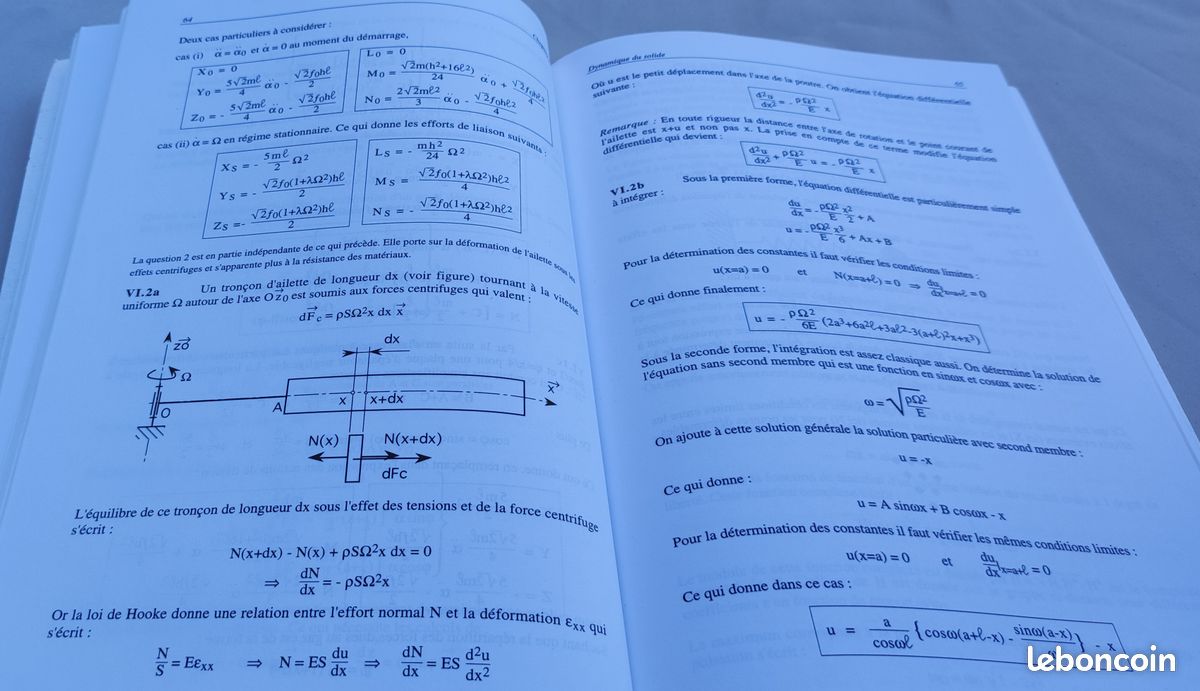 64
Deux cas particuliers à considérer :
cas (i) α̈ = α̈₀ et α̇ = 0 au moment du démarrage,
X₀ = 0
Y₀ = 5√2mℓ/4 α̈₀ - √2f₀hℓ/2
Z₀ = - 5√2mℓ/4 α̈₀ - √2f₀hℓ/2
L₀ = 0
M₀ = √2m(h²+16ℓ²)/24 α̈₀ + √2f₀hℓ²/4
N₀ = 2√2mℓ²/3 α̈₀ - √2f₀hℓ²/4
cas (ii) α̇ = Ω en régime stationnaire. Ce qui donne les efforts de liaison suivants :
X_S = - 5mℓ/2 Ω²
Y_S = - √2f₀(1+λΩ²)hℓ/2
Z_S = - √2f₀(1+λΩ²)hℓ/2
L_S = - mh²/24 Ω²
M_S = √2f₀(1+λΩ²)hℓ²/4
N_S = - √2f₀(1+λΩ²)hℓ²/4
La question 2 est en partie indépendante de ce qui précède. Elle porte sur la déformation de l'ailette sous les
effets centrifuges et s'apparente plus à la résistance des matériaux.
VI.2a Un tronçon d'ailette de longueur dx (voir figure) tournant à la vitesse
uniforme Ω autour de l'axe O z₀ est soumis aux forces centrifuges qui valent :
dF⃗c = ρSΩ²x dx x⃗
dx
z⃗0
Ω
x⃗
O
A
x
x+dx
N(x)
N(x+dx)
dFc
L'équilibre de ce tronçon de longueur dx sous l'effet des tensions et de la force centrifuge
s'écrit :
N(x+dx) - N(x) + ρSΩ²x dx = 0
⇒ dN/dx = - ρSΩ²x
Or la loi de Hooke donne une relation entre l'effort normal N et la déformation εxx qui
s'écrit :
N/S = Eεxx ⇒ N = ES du/dx ⇒ dN/dx = ES d²u/dx²
Dynamique du solide
65
Où u est le petit déplacement dans l'axe de la poutre. On obtient l'équation différentielle
suivante :
d²u/dx² = - ρΩ²/E x
Remarque : En toute rigueur la distance entre l'axe de rotation et le point courant de
l'ailette est x+u et non pas x. La prise en compte de ce terme modifie l'équation
différentielle qui devient :
d²u/dx² + ρΩ²/E u = - ρΩ²/E x
VI.2b Sous la première forme, l'équation différentielle est particulièrement simple
à intégrer :
du/dx = - ρΩ²/E x²/2 + A
u = - ρΩ²/E x³/6 + Ax + B
Pour la détermination des constantes il faut vérifier les conditions limites :
u(x=a) = 0 et N(x=a+ℓ) = 0 ⇒ du/dx)x=a+ℓ = 0
Ce qui donne finalement :
u = - ρΩ²/6E (2a³+6a²ℓ+3aℓ²-3(a+ℓ)²x+x³)
Sous la seconde forme, l'intégration est assez classique aussi. On détermine la solution de
l'équation sans second membre qui est une fonction en sinωx et cosωx avec :
ω = √(ρΩ²/E)
On ajoute à cette solution générale la solution particulière avec second membre :
u = -x
Ce qui donne :
u = A sinωx + B cosωx - x
Pour la détermination des constantes il faut vérifier les mêmes conditions limites :
u(x=a) = 0 et du/dx)x=a+ℓ = 0
Ce qui donne dans ce cas :
u = a/cosωℓ {cosω(a+ℓ-x) - sinω(a-x)/ } - x
leboncoin